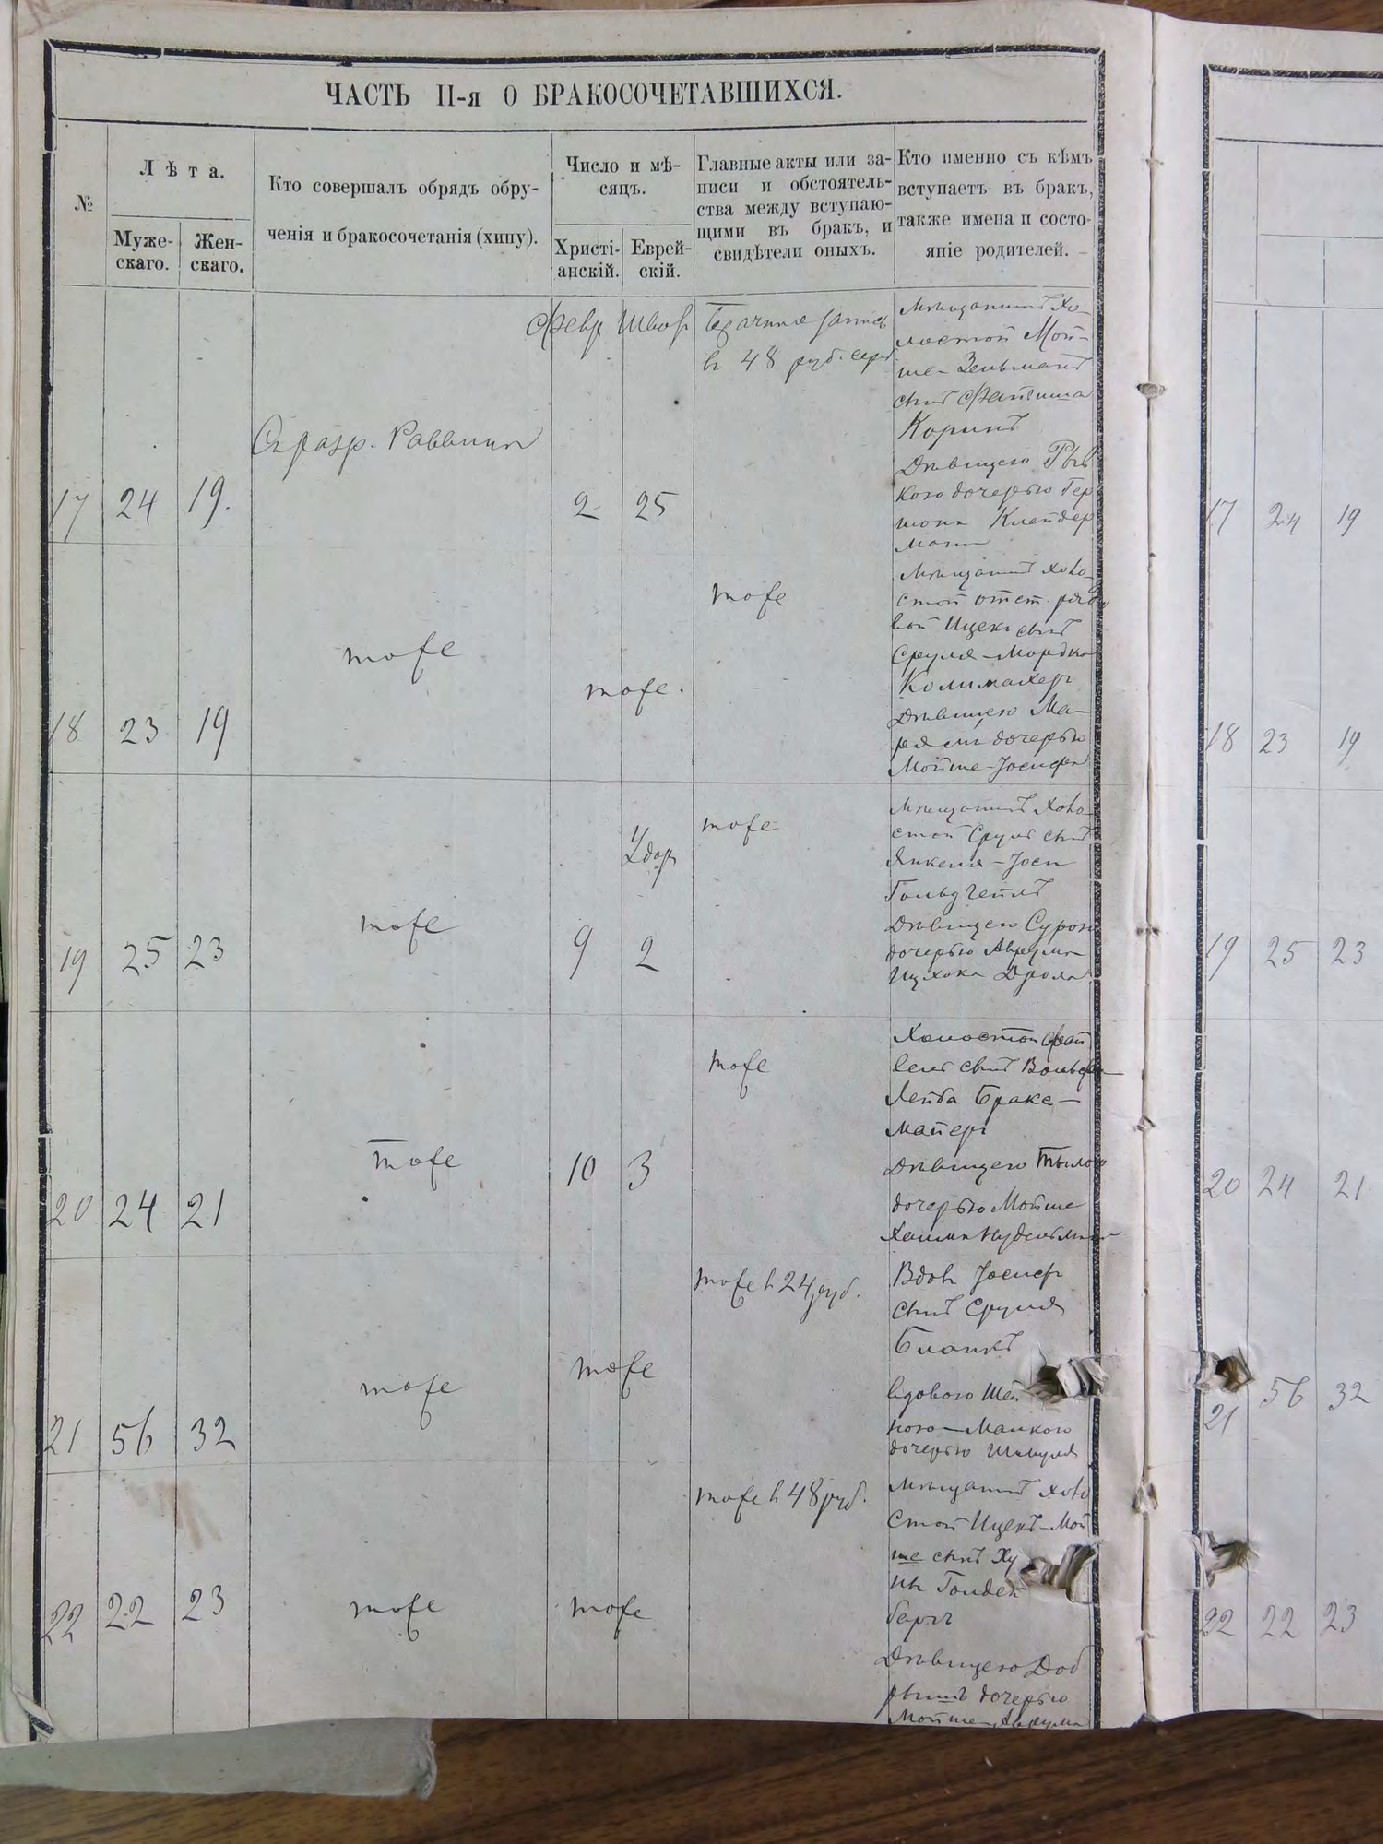 ЧАСТЬ II-я О БРАКОСОЧЕТАВШИХСЯ.
№
Лѣта.
Муже-
скаго.
Жен-
скаго.
Кто совершалъ обрядъ обру-
ченія и бракосочетанія (хипу).
Число и мѣ-
сяцъ.
Христі-
анскій.
Еврей-
скій.
Главные акты или за-
писи и обстоятель-
ства между вступаю-
щими въ бракъ, и
свидѣтели оныхъ.
Кто именно съ кѣмъ
вступаетъ въ бракъ,
также имена и состо-
яніе родителей.
17 24 19.
Раввинъ
Февр Шват
2 25
48 руб. сер
Мѣщанинъ Хо-
лостой Мой-
ше-Зельманъ
сынъ
Коринъ
Дѣвицею
кою дочерью Гер
шона Клейдер
манъ
18 23 19
тоже
тоже.
тоже
Мѣщанинъ Холо-
стой отст. рядо
вой Ицекъ сынъ
Сруля-Мордко
Дѣвицею Ма-
рямъ дочерью
Мойше-Іосифа
19 25 23
тоже
Адар
9 2
тоже
Мѣщанинъ Холо-
стой Сруль сынъ
Янкеля-Іося
Дѣвицею Сурою
дочерью Аврума
Ицхока
20 24 21
тоже
10 3
тоже
Холостой Фай
вель сынъ Вольфа
Лейба Браке-
майеръ
Дѣвицею
дочерью Мойше
Хаима Нудельман
21 56 32
тоже
тоже
тоже в 24 руб.
Вдов Іосиф
сынъ Сруля
Бланкъ
вдовою Шей
ною-Малкою
дочерью Шмуля
22 22 23
тоже
тоже
тоже в 48 руб.
Мѣщанинъ Холо
стой Ицекъ-Мой
ше сынъ
Голден
бергъ
Дѣвицею Доб
рышъ дочерью
Мойше-Аврума
17 24 19
18 23 19
19 25 23
20 24 21
21 56 32
22 22 23